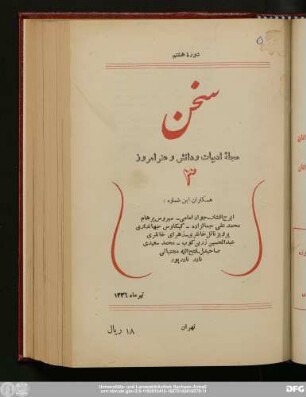 دورهٔ هشتم
سخن
مجلهٔ ادبیات و دانش و هنر امروز
۳
همکاران این شماره :
ایرج افشار ـ جواد امامی ـ سیروس پرهام
محمد علی جمالزاده ـ کیکاوس جهانداری
پرویز ناتل خانلری ـ زهرای خانلری
عبدالحسین زرین کوب ـ محمد سعیدی
فتح‌الله مجتبائی
نادر نادرپور
تیر ماه ۱۳۳۶
تهران
۱۸ ریال
Universitäts- und Landesbibliothek Sachsen-Anhalt
DFG